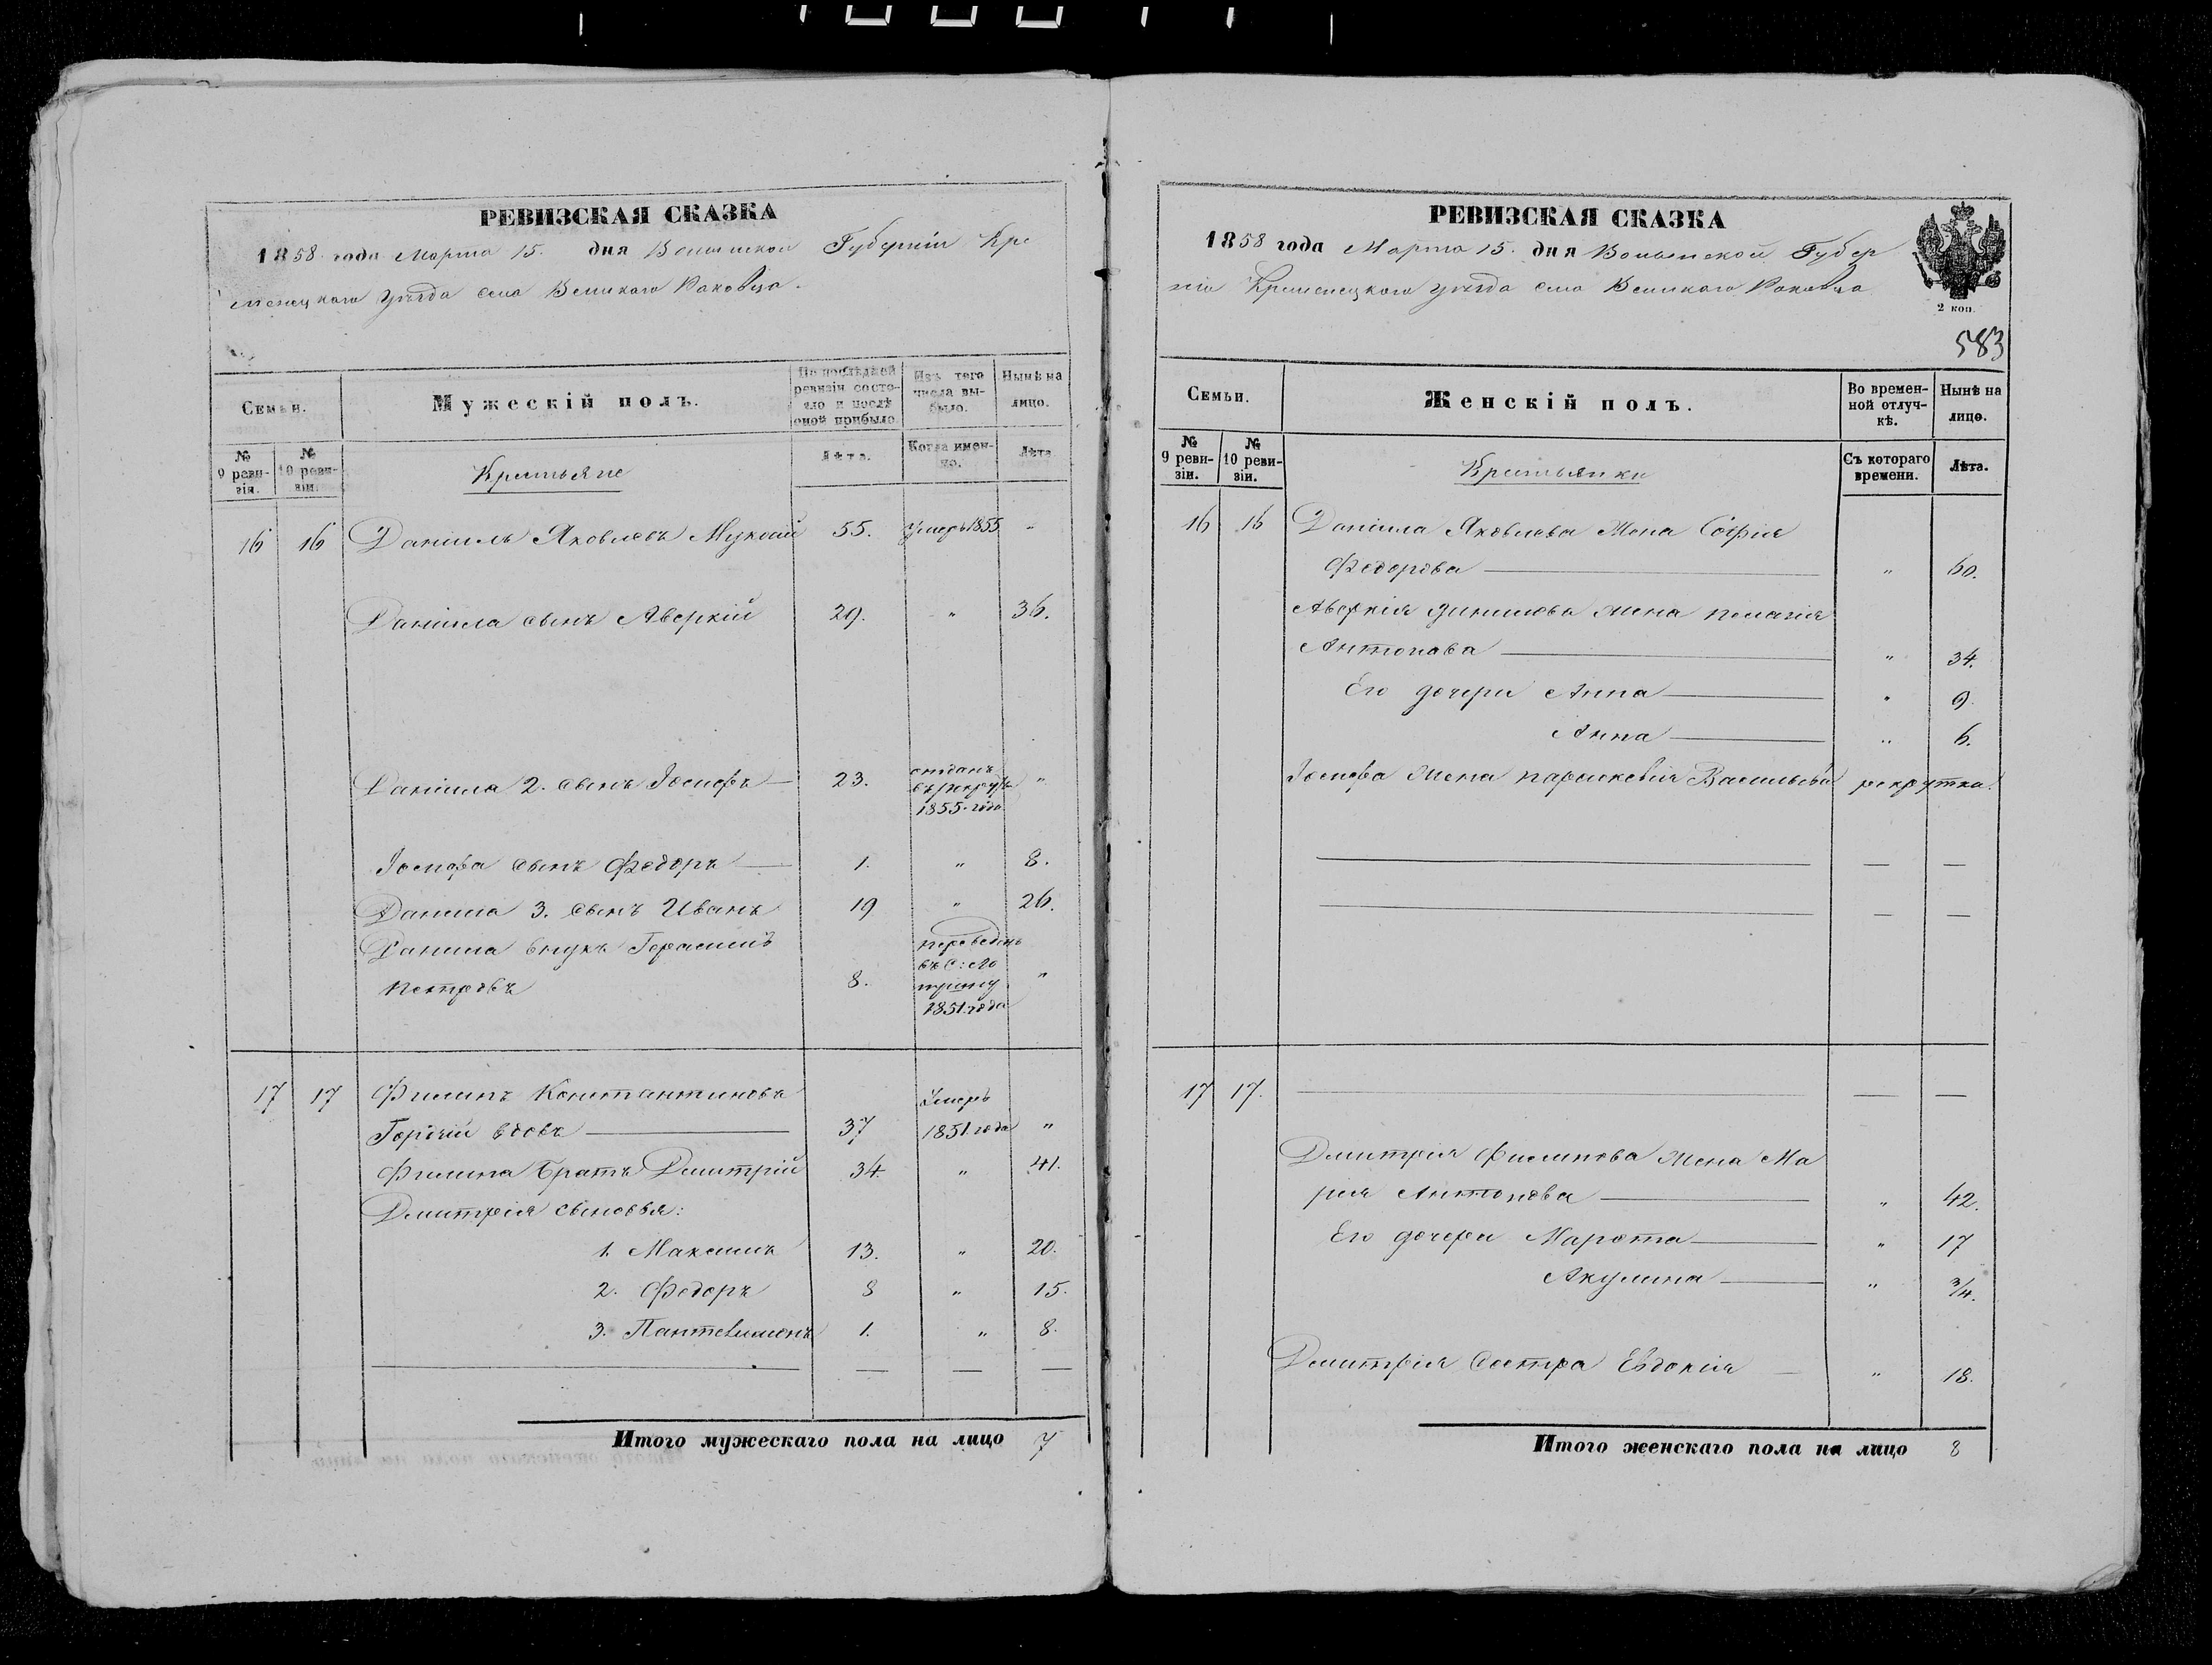 РЕВИЗСКАЯ СКАЗКА
1858 года Марта 15. дня Волынской Губерніи Кре
менецкаго уѣзда села Великаго Раковца.
Семьи.
Мужескій полъ.
По послѣдней ревизіи состояло и послѣ оной прибыло.
Изъ того числа выбыло.
Нынѣ на лицо.
№ 9 ревизіи.
№ 10 ревизіи.
Крестьяне
Лѣта.
Когда именно.
Лѣта
16 16 Даніилъ Яковлевъ 55. Умеръ 1855 "
Даніила сынъ Аверкій 29. " 36.
Даніила 2. сынъ Іосифъ — 23. отданъ въ рекруты 1855. года "
Іосифа сынъ Федоръ — 1. " 8.
Даниила 3. сынъ Иванъ 19 " 26.
Данила внукъ Герасимъ
Петровъ 8. переведенъ въ с: 1851. года "
17 17 Филипъ Константиновъ
вдовъ — 37 Умеръ 1851. года "
Филипа братъ Дмитрій 34. " 41.
Дмитрія сыновья:
1. Максимъ 13. " 20.
2. Федоръ 8 " 15.
3. Пантелимонъ 1. " 8.
— — — —
Итого мужескаго пола на лицо 7
РЕВИЗСКАЯ СКАЗКА
1858 года Марта 15. дня Волынской Губер
ніи Кременецкаго уѣзда села Великаго Раковца
2 коп.
583
Семьи.
Женскій полъ.
Во временной отлучкѣ.
Нынѣ на лицо.
№ 9 ревизіи.
№ 10 ревизіи.
Крестьянки
Съ котораго времени.
Лѣта.
16 16 Даніила Яковлева жена Софія
Федорова — " 60.
Аверкія жена Пелагія
Антонова — " 34.
Его дочери Анна — " 9.
Анна — " 6.
Іосифа жена Параскевія Васильева рекрутка.
— — —
— — —
17 17. — — —
Дмитрія Филипова жена Ма
рія Антонова — " 42.
Его дочери — " 17
Акулина — " 3/4.
Дмитрія сестра Евдокія — " 18.
Итого женскаго пола на лицо 8